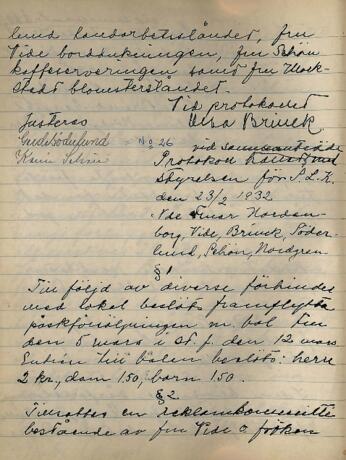 lund handarbetsståndet, fru
Vide borddukningen, fru Schön
kaffeserveringen samt fru Mock-
stedt blomsterståndet.
Vid protokollet
Elsa Brinck.
Justeras
Gudel Söderlund
Karin Schön
No 26
vid sammanträde
Protokoll hållet med
Styrelsen för S.L.K.
den 23/2 1932
Vde Fruar Norden-
borg, Vide, Brinck, Söder-
lund, Schön, Nordgren
§ 1
Till följd av diverse förhinder
med lokal beslöts framflytta
påskförsäljningen m. bal från
den 5 mars i st. f. den 12 mars
Entrén till balen beslöts: herre
2 kr., dam 1.50, barn 1.50.
§ 2
Tillsattes en reklamkommitté
bestående av fru Vide o. fröken